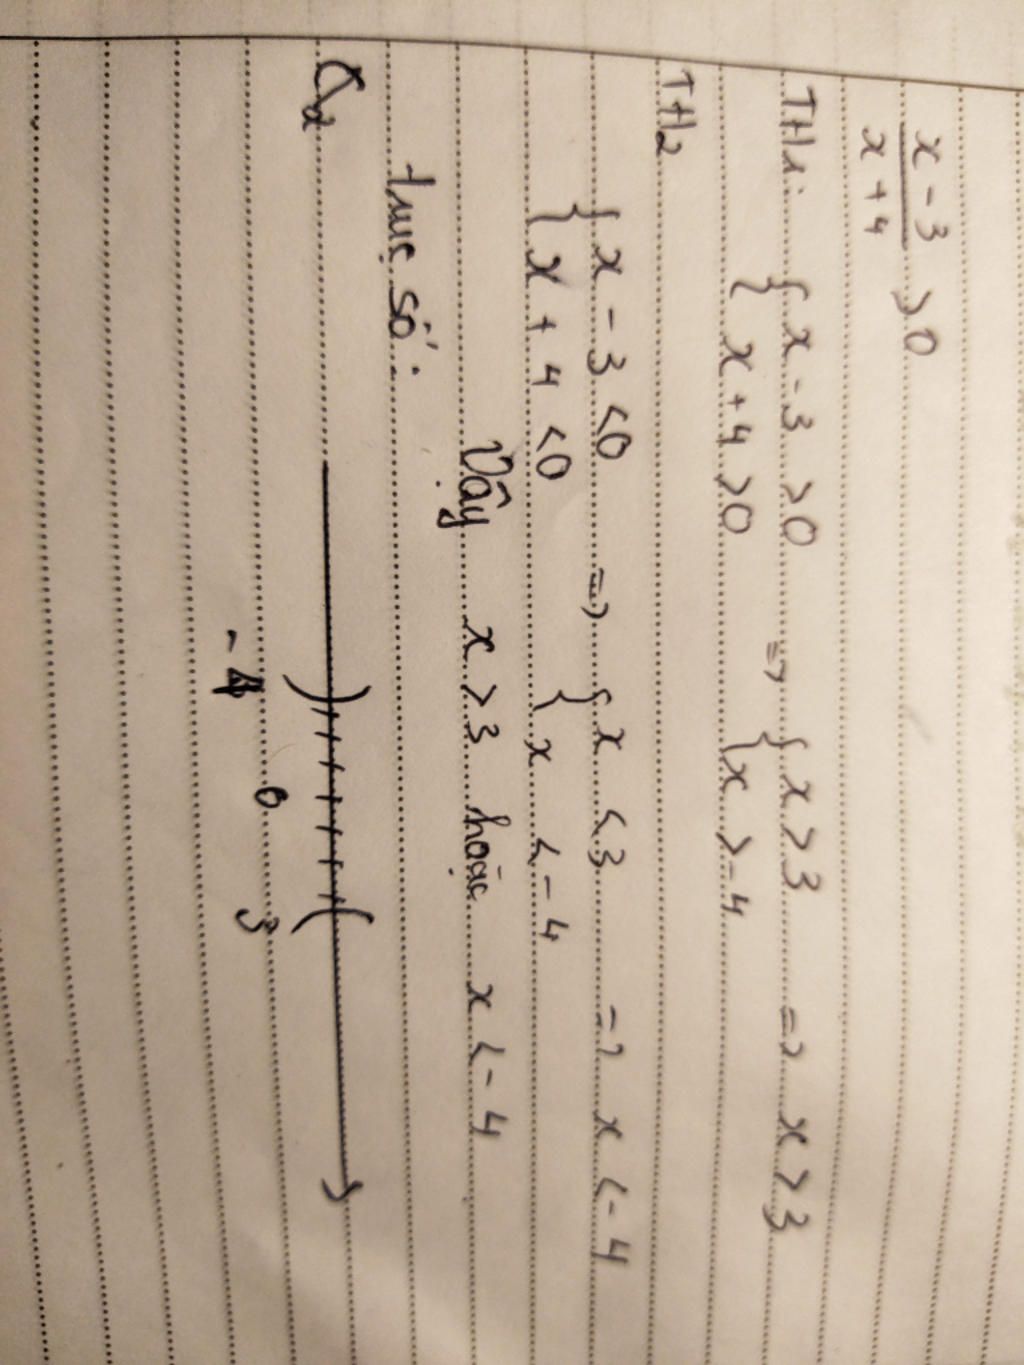 x - 3
x + 4
> 0
TH1: { x - 3 > 0 => { x > 3 => x > 3
x + 4 > 0 x > -4
TH2
{ x - 3 < 0 => { x < 3 => x < -4
x + 4 < 0 x < -4
Vậy x > 3 hoặc x < -4
trục số:
-4 0 3